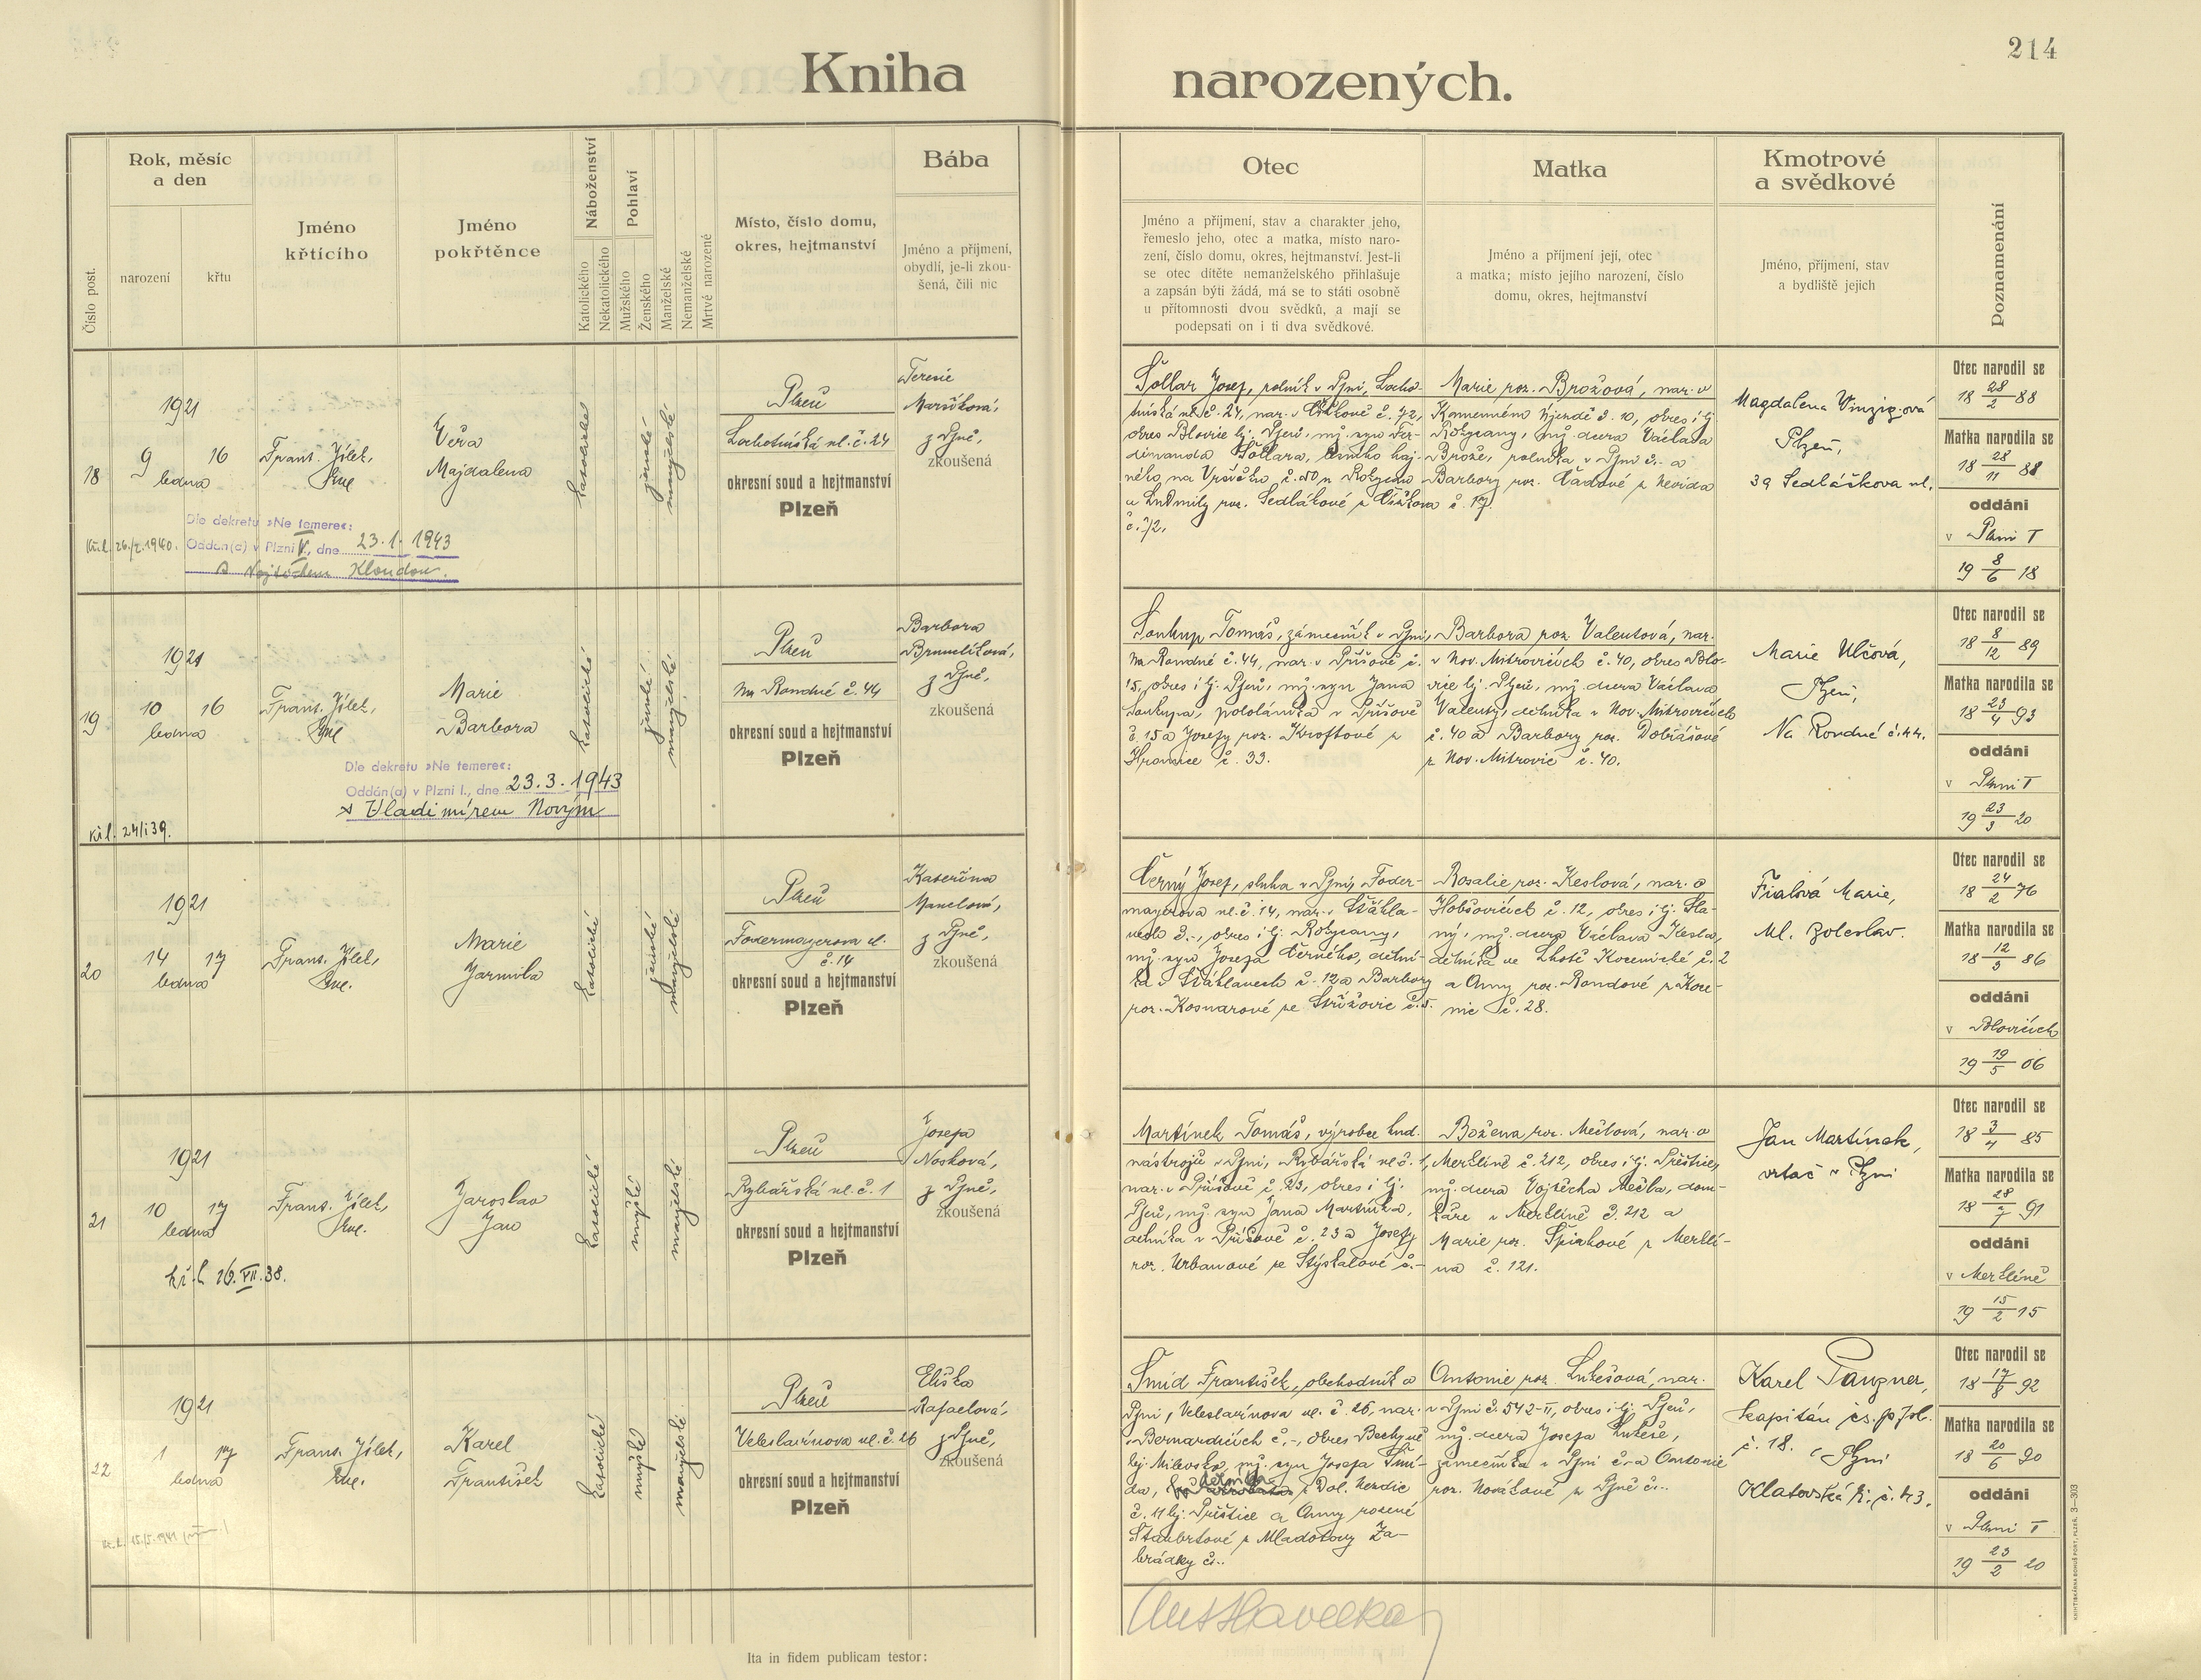 214
Kniha narozených.
Číslo post.
Rok, měsíc
a den
narození
křtu
Jméno
křtícího
Jméno
pokřtěnce
Náboženství
Katolického
Nekatolického
Pohlaví
Mužského
Ženského
Manželské
Nemanželské
Mrtvé narozené
Místo, číslo domu,
okres, hejtmanství
Bába
Jméno a příjmení,
obydlí, je-li zkou-
šená, čili nic
Otec
Jméno a příjmení, stav a charakter jeho,
řemeslo jeho, otec a matka, místo naro-
zení, číslo domu, okres, hejtmanství. Jest-li
se otec dítěte nemanželského přihlašuje
a zapsán býti žádá, má se to státi osobně
u přítomnosti dvou svědků, a mají se
podepsati on i ti dva svědkové.
Matka
Jméno a příjmení její, otec
a matka; místo jejího narození, číslo
domu, okres, hejtmanství
Kmotrové
a svědkové
Jméno, příjmení, stav
a bydliště jejich
Poznamenání
18
1921
9 16
ledna
Frant. Jílek,
Věra
Majdalena
katolické
ženské
manželské
Plzeň
Lochotínská ul. č. 24
okresní soud a hejtmanství
Plzeň
Terezie
Maršíková,
z Plzně,
zkoušená
Dle dekretu »Ne temere«:
Oddán(a) v Plzni V., dne 23.1.1943
s Vojtěchem Kloudou.
Šollar Josef, rolník v Plzni, Locho-
tínská ul. č. 24, nar. v Čížkově č. 72,
okres Blovice hj. Plzeň, mž. syn Fer-
dinanda Šollara,
a Ludmily roz. Sedlákové z Čížkova
č. 72.
Marie roz. Brožová, nar. v
Kamenném Újezdě č. 10, okres i hj.
Rokycany, mž. dcera Václava
Brože, rolníka v Plzni č. - a
Barbory roz. Čadové z Nevida
č. 17.
Magdalena Vinzigová
Plzeň,
39 Sedláčkova ul.
Otec narodil se
18 28/2 88
Matka narodila se
18 28/11 88
oddáni
v Plzni I
19 8/6 18
19
1921
10 16
ledna
Frant. Jílek,
Marie
Barbora
katolické
ženské
manželské
Plzeň
Na Roudné č. 44
okresní soud a hejtmanství
Plzeň
Barbora
Brunclíková,
z Plzně,
zkoušená
Dle dekretu »Ne temere«:
Oddán(a) v Plzni I., dne 23.3.1943
s Vladimírem Novým
Soukup Tomáš, zámečník v Plzni,
Na Roudné č. 44, nar. v Příšově č.
15, okres i hj. Plzeň, mž. syn Jana
Soukupa, pololáníka v Příšově
č. 15 a Josefy roz. Kroftové z
Hromnice č. 33.
Barbora roz. Valentová, nar.
v Nov. Mitrovicích č. 40, okres Blo-
vice hj. Plzeň, mž. dcera Václava
Valenty, dělníka v Nov. Mitrovicích
č. 40 a Barbory roz. Dobrášové
z Nov. Mitrovic č. 40.
Marie Ulčová,
Plzeň,
Na Roudné č. 44.
Otec narodil se
18 8/12 89
Matka narodila se
18 23/4 93
oddáni
v Plzni I
19 23/3 20
20
1921
14 17
ledna
Frant. Jílek,
Marie
Jarmila
katolické
ženské
manželské
Plzeň
Fodermayerova ul.
č. 14
okresní soud a hejtmanství
Plzeň
Kateřina
Manclová,
z Plzně,
zkoušená
Černý Josef, sluha v Plzni, Foder-
mayerova ul. č. 14, nar. v Šťáhla-
vech č. -, okres i hj. Rokycany,
mž. syn Josefa Černého, dělní-
ka v Šťáhlavech č. 12 a Barbory
roz. Kosnarové ze Střížovic č. 5.
Rosalie roz. Keslová, nar. v
Hobšovicích č. 12, okres i hj. Sla-
ný, mž. dcera Václava Kesla,
dělníka ve Lhotě Kocenické č. 2
a Anny roz. Randové z Kore-
nic č. 28.
Fialová Marie,
Ml. Boleslav.
Otec narodil se
18 24/2 76
Matka narodila se
18 12/3 86
oddáni
v Blovicích
19 19/5 06
21
1921
10 17
ledna
Frant. Jílek,
Jaroslav
Jan
katolické
mužské
manželské
Plzeň
Rybářská ul. č. 1
okresní soud a hejtmanství
Plzeň
Josefa
Nosková,
z Plzně,
zkoušená
kř. l. 26.VII.38.
Martínek Tomáš, výrobce hud.
nástrojů v Plzni, Rybářská ul. č. 1,
nar. v Příšově č. 23, okres i hj.
Plzeň, mž. syn Jana Martínka,
dělníka v Příšově č. 23 a Josefy
roz. Urbanové ze Stýskalové č. -
Božena roz. Mečlová, nar. v
Merklíně č. 212, okres i hj. Přeštice,
mž. dcera Vojtěcha Mečla, dom-
káře v Merklíně č. 212 a
Marie roz. Špirkové z Merklí-
na č. 121.
Jan Martínek,
vrtač v Plzni
Otec narodil se
18 3/4 85
Matka narodila se
18 28/7 91
oddáni
v Merklíně
19 15/2 15
22
1921
1 17
ledna
Frant. Jílek,
Karel
František
katolické
mužské
manželské
Plzeň
Veleslavínova ul. č. 26
okresní soud a hejtmanství
Plzeň
Eliška
Rafaelová,
z Plzně,
zkoušená
Šmíd František, obchodník v
Plzni, Veleslavínova ul. č. 26, nar.
v Bernardicích č. -, okres Bechyně
hj. Milevsko, mž. syn Josefa Šmí-
da, dělníka z Dol. Nerdic
č. 11 hj. Přeštice a Anny rozené
z Mladotovy Za-
hrádky č. -.
Antonie roz. Lukešová, nar.
v Plzni č. 542-II, okres i hj. Plzeň,
mž. dcera Josefa Lukeše,
zámečníka v Plzni č. - a Antonie
roz. Novákové z Plzně č. -.
Karel Tauzner,
kapitán čs. p. pl.
č. 18. v Plzni
Klatovská tř. č. 43.
Otec narodil se
18 17/8 92
Matka narodila se
18 20/6 90
oddáni
v Plzni I
19 23/2 20
Ant Havelka
Ita in fidem publicam testor:
KNIHTISKÁRNA BOHUŠ PORT, PLZEŇ. 3—303